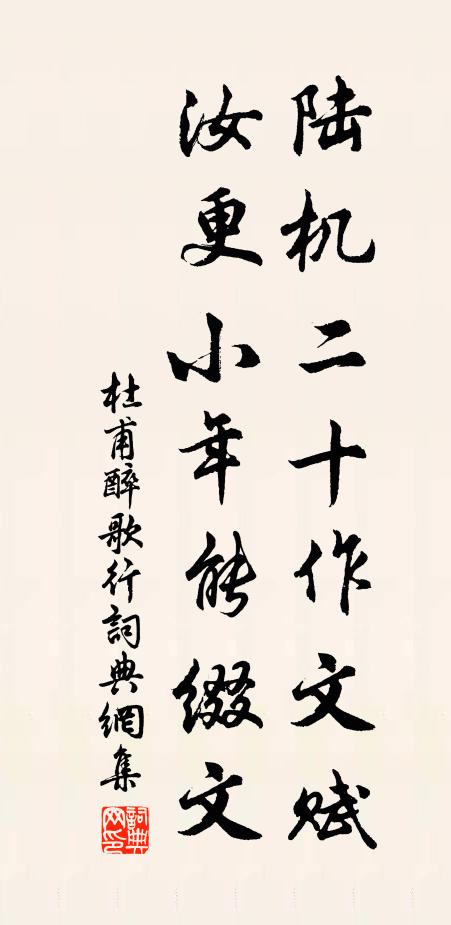 陆机二十作文赋
汝更小年能缀文
杜甫醉歌行詞典網集
詞典網印